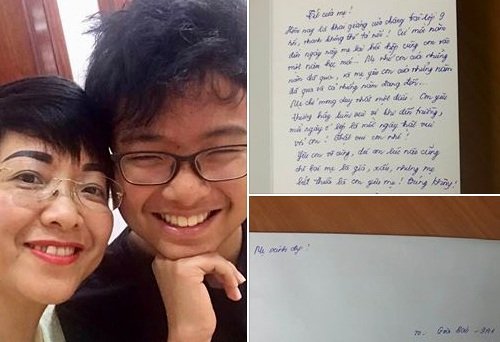 Tết của mẹ!
Hôm nay là khai giảng của chàng trai lớp 9
rồi, nhanh không thể tả nổi! Cứ mỗi năm
đến ngày này mẹ lại hồi hộp cùng con vào
một năm học mới... Mẹ nhớ con của những
năm đã qua, và mẹ yêu con của những năm
đã qua và cả những năm đang đến...
Mẹ chỉ mong duy nhất một điều: Con yêu
thương hãy luôn vui vẻ khi đến trường,
mỗi ngày ở lớp là một ngày thật vui
với con! Thật vui con nhé!
Yêu con vô cùng, dù con lúc nào cũng
chê bai mẹ là già, xấu, nhưng mẹ
biết thừa là con yêu mẹ! Đúng không,
Mẹ xinh đẹp!
To: Gia Bảo - 9A1